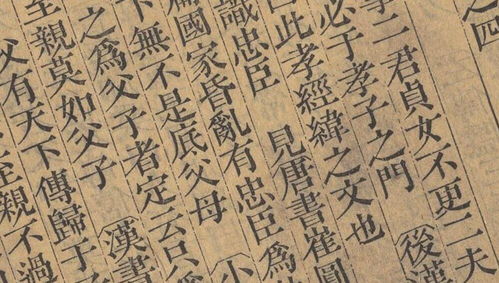 之四
事二君貞女不更二夫
必于孝子之門 後漢
曰此孝經緯之文也
識忠臣 見唐書崔圓
國家昏亂有忠臣爲
下無不是底父母 〔小
之爲父子者定云只爲
至親莫如父子 〔漢書
父有天下傳歸于子
至親不過